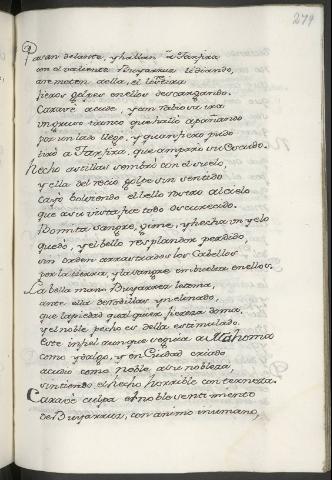 279
Pasan delante, y hallan a Tarfira
con el valiente Buyarrux lidiando,
arremeten
fieros golpes en ellos descargando.
Caxavè acude, y con rabiosa ira
un grueso tronco que halló apañando
por un lado llegó, y quan fiero pudo
tirò a Tarfira, que amparò su Escudo.
Hecho astillas sembrò con el suelo,
y ella del recio golpe sin sentido
cayò bolviendo el bello rostro al cielo
que a su vista fue todo oscurecido.
Vomita sangre, gime, y hecha un yelo
quedò, y el bello resplandor perdido,
sin orden arrastrados los Cabellos
por la tierra, y la sangre embuelta en ellos.
La bella mano Buyarrux le toma,
ante ella de rodillas inclinado,
que la piedad qualquier fiereza doma,
y el noble pecho es della estimulado.
Este infiel aunque seguia a Mahoma
como ydalgo, y en Ciudad criado
acudio como noble a su nobleza,
sintiendo el hecho horrible con terneza.
Caxavè culpa el noble sentimiento
de Buyarrux, con animo inumano,